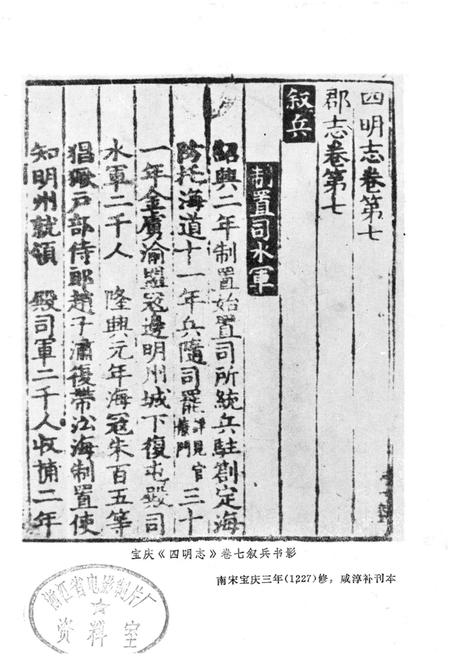 四明志卷第七
郡志卷第七
叙兵
制置司水軍
紹興二年制置始置司所統兵駐劄定海
防托海道十一年兵隨司罷詳見官廨門三十
一年金虜渝盟冦邊明州城下復屯殿司
水軍二千人 隆興元年海冦朱百五等
猖獗戶部侍郎趙子潚復帶沿海制置使
知明州就領 殿司軍二千人收捕二年
宝庆《四明志》卷七叙兵书影
南宋宝庆三年(1227)修，咸淳补刊本
浙江省电影制片厂
资料室